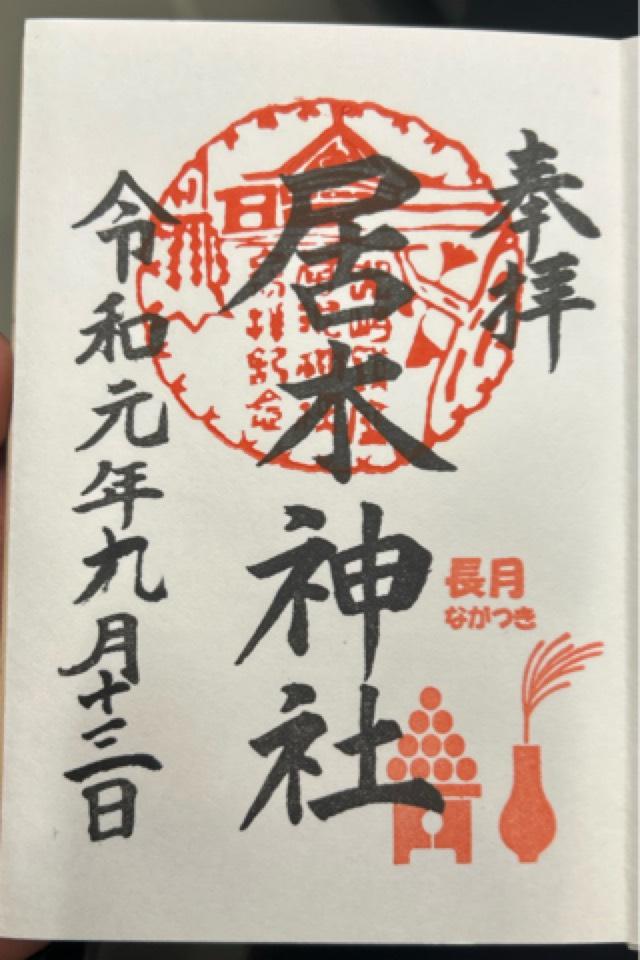 奉拝
居木神社
長月
ながつき
令和元年九月十三日